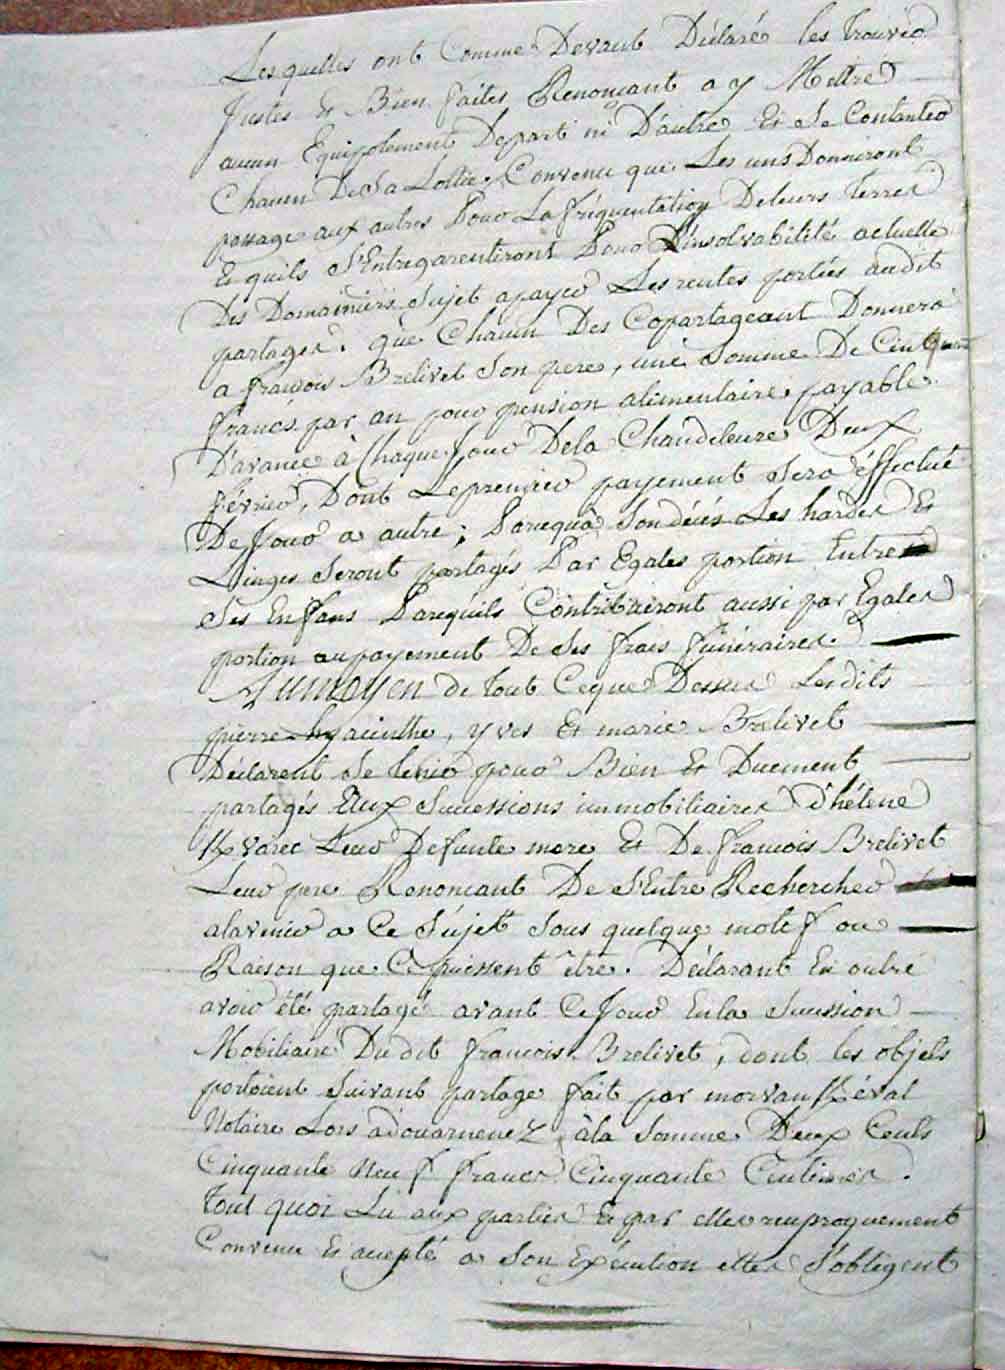 Lesquelles ont Comme Devant Déclaré les trouver
Justes Et Bien faites, Renonçant a y Mettre
aucun Equipolement Depart ni D'autre Et Se Contanter
Chacun De Sa Lottie, Convenu que Les uns Donneront
passage aux autres Pour La fréquentation De leurs terres
Et quils S'Entregarentiront Pour L'insolvabilité actuelle
Des Domainiers Sujet a payer Les rentes portées audit
partages. que Chacun Des Copartageant Donnera
a françois Brelivet Son pere, une Somme De Cinquante
francs par an pour pension alimentaire payable
D'avance à Chaque Jour De la Chandeleure Deux
février, Dont Le premier payement Sera éffectué
De Jour a autre ; Parequ'à Son décés Les hardes Et
Linges Seront partagés Par Egales portion Entre
Ses Enfans Parequils Contribairont aussi par Egales
portion au payement De Ses frais funéraires.
Aumoyen de tout Ceque Dessus Lesdits
pierre hyacinthe, yves Et marie Brelivet
Déclarent Se tenir pour Bien Et Duement
partagés Aux Successions immobiliaires d'hélene
Kvarec Leur Defunte mere Et De francois Brelivet
Leur pere Renonçant De S'Entre Rechercher
alavenir a Ce Sujet Sous quelque motif ou
Raison que Ce puissent être. Déclarant En outre
avoir été partagé avant Ce Jour En la Succession
Mobiliaire Dudit francois Brelivet, dont les objets
portoient Suivant partage fait par morvan Kéval
Notaire Lors adouarnenez, àla Somme Deux Cents
Cinquante Neuf francs Cinquante Centimes.
Tout quoi Lu aux parties Et par elles reciproquement
Convenu Et accepté a Son Exécution elles S'obligent